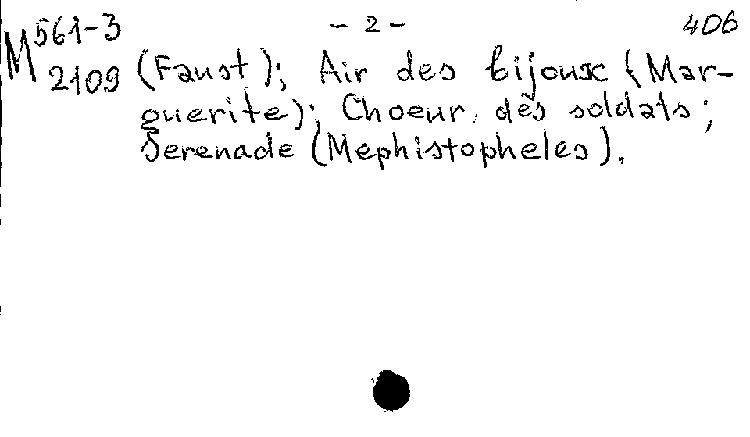 M 561-3 - 2 - 406
2109 (Faust); Air des bijoux (Mar-
guerite); Choeur des soldats;
Serenade (Mephistopheles).